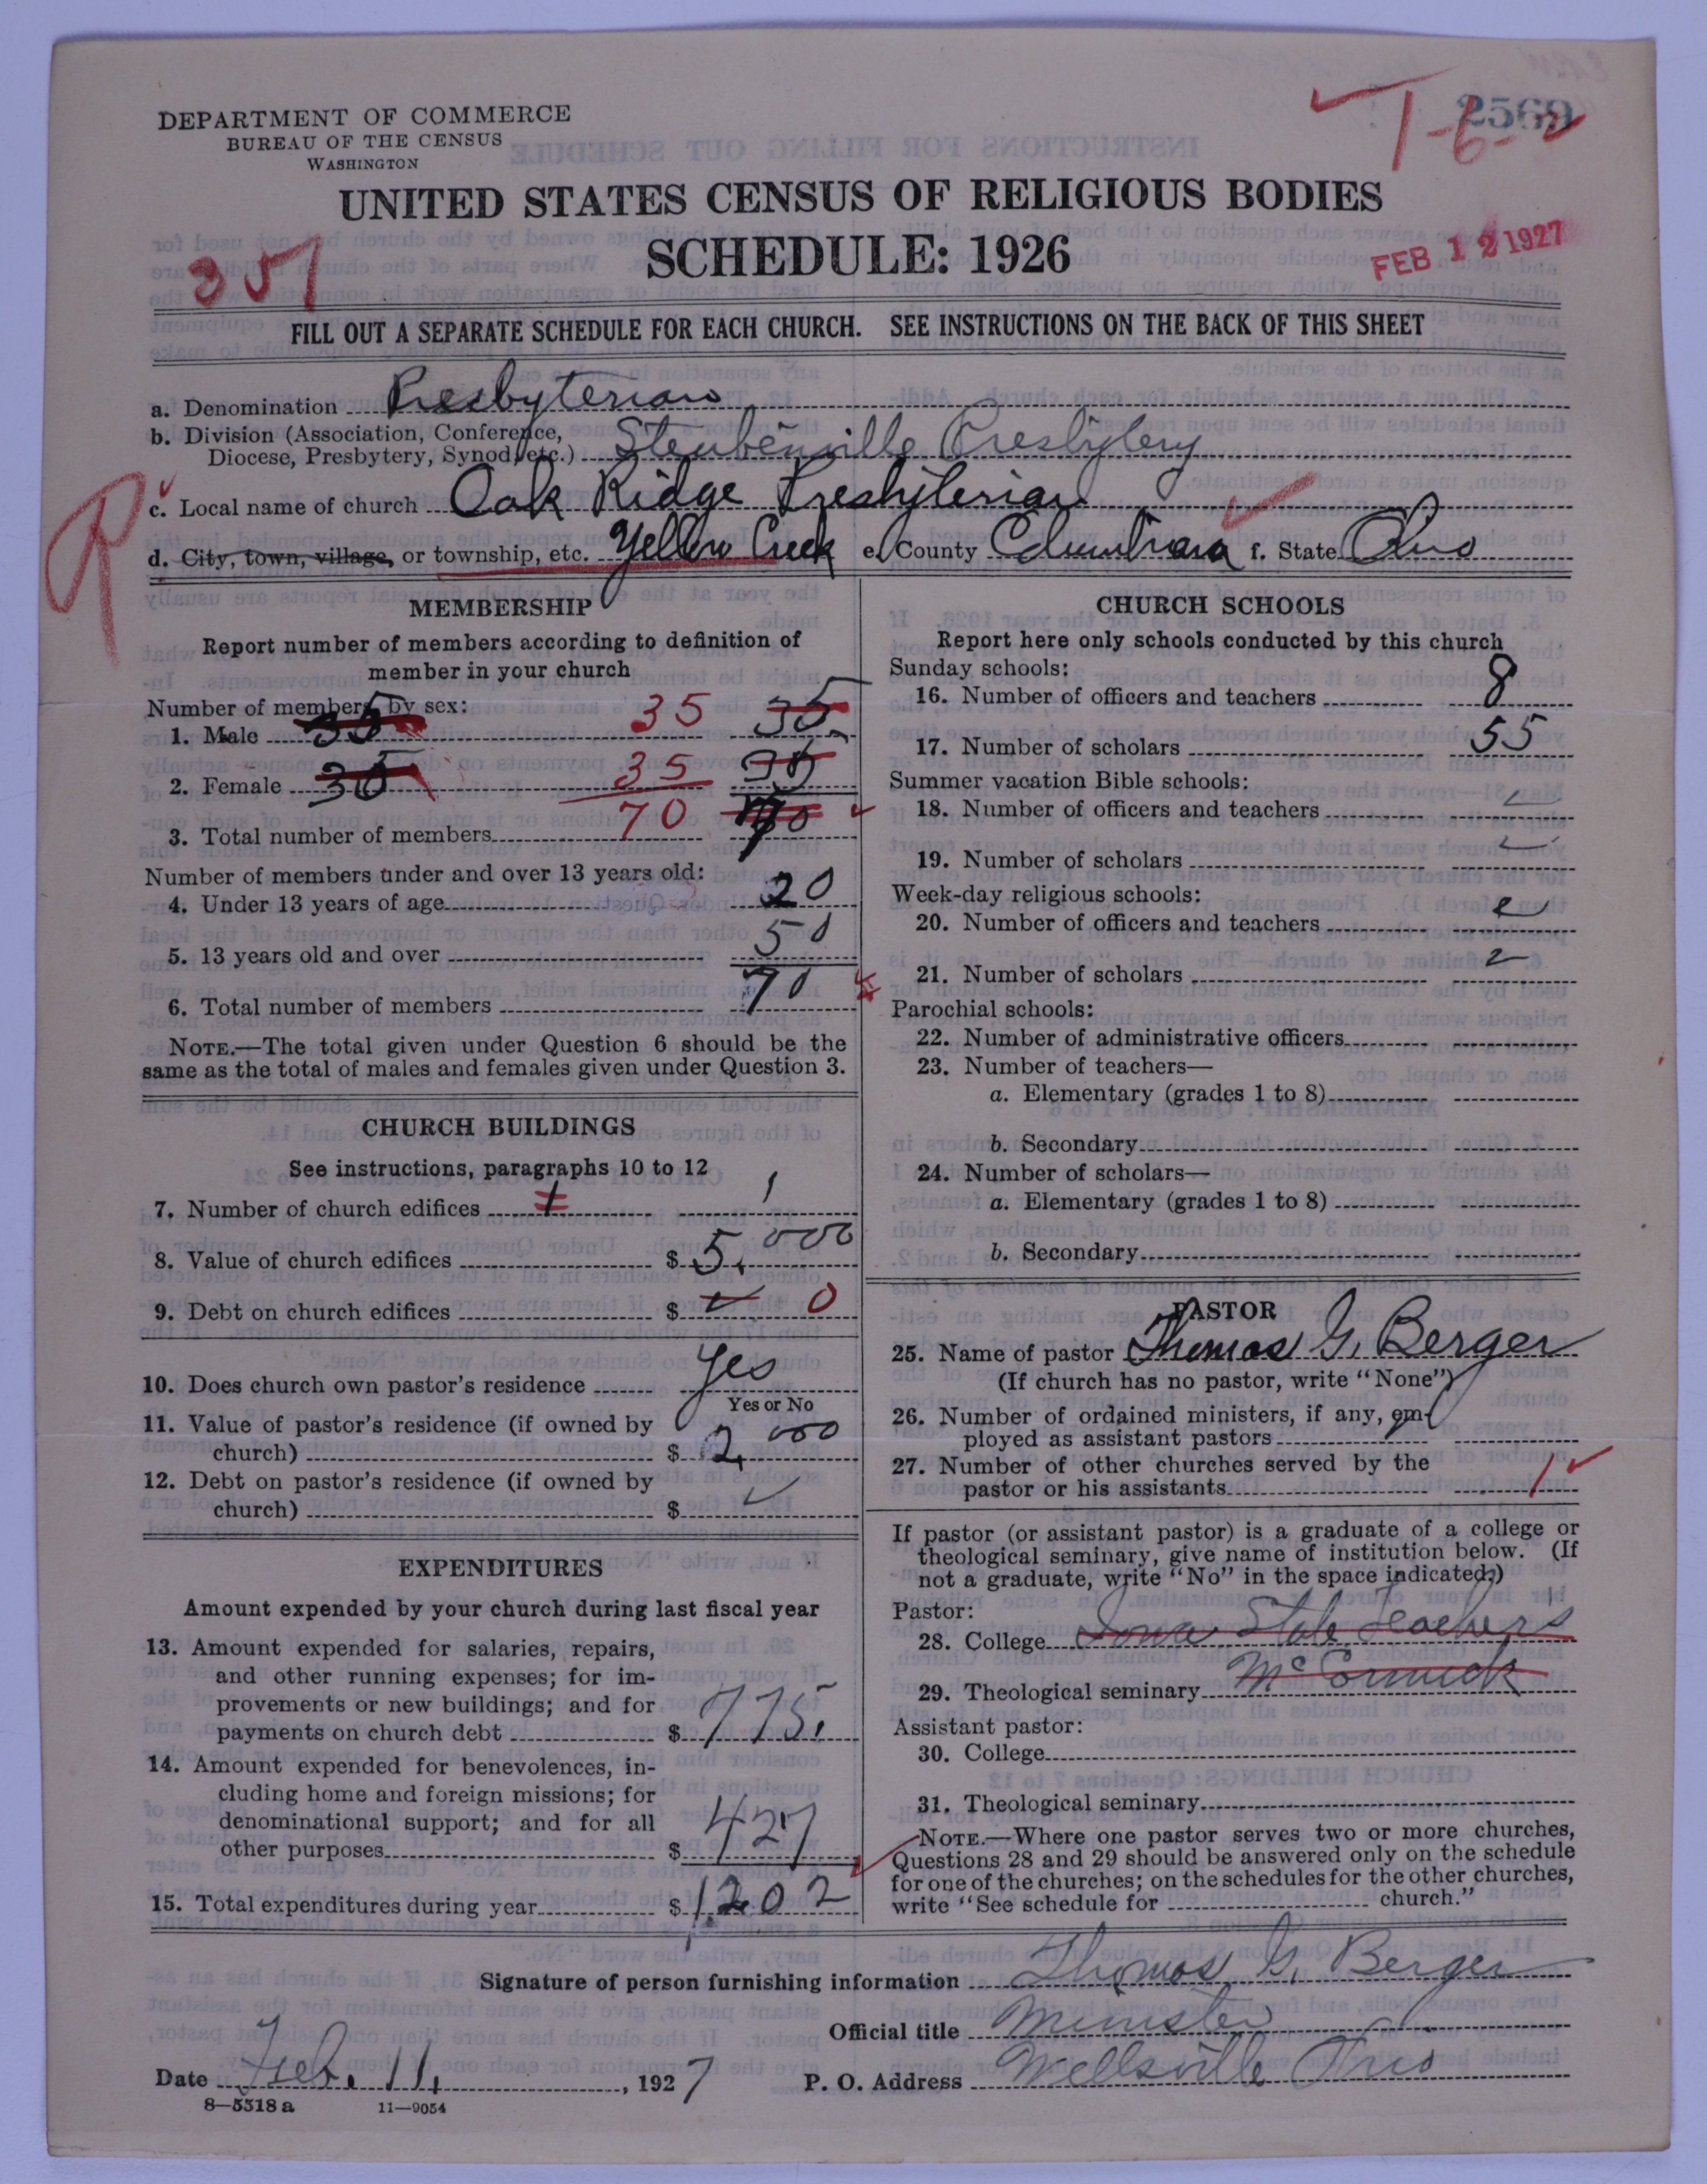 DEPARTMENT OF COMMERCE
BUREAU OF THE CENSUS
WASHINGTON
2569
T-6-2
UNITED STATES CENSUS OF RELIGIOUS BODIES
SCHEDULE: 1926
351
FEB 12 1927
FILL OUT A SEPARATE SCHEDULE FOR EACH CHURCH. SEE INSTRUCTIONS ON THE BACK OF THIS SHEET
a. Denomination Presbyterian
b. Division (Association, Conference,
Diocese, Presbytery, Synod, etc.) Steubenville Presbytery
R
c. Local name of church Oak Ridge Presbyterian
d. City, town, village, or township, etc. Yellow Creek e. County Columbiana f. State Ohio
MEMBERSHIP
Report number of members according to definition of
member in your church
Number of members by sex:
1. Male 35 35 35
2. Female 35 35 35
3. Total number of members 70 70
Number of members under and over 13 years old:
4. Under 13 years of age 20
5. 13 years old and over 50
6. Total number of members 70
NOTE.—The total given under Question 6 should be the
same as the total of males and females given under Question 3.
CHURCH BUILDINGS
See instructions, paragraphs 10 to 12
7. Number of church edifices 1 1
8. Value of church edifices $ 5,000
9. Debt on church edifices $ 0
10. Does church own pastor's residence Yes
Yes or No
11. Value of pastor's residence (if owned by
church) $ 2,000
12. Debt on pastor's residence (if owned by
church) $
EXPENDITURES
Amount expended by your church during last fiscal year
13. Amount expended for salaries, repairs,
and other running expenses; for im-
provements or new buildings; and for
payments on church debt $ 775.
14. Amount expended for benevolences, in-
cluding home and foreign missions; for
denominational support; and for all
other purposes $ 427
15. Total expenditures during year $ 1,202
CHURCH SCHOOLS
Report here only schools conducted by this church
Sunday schools:
16. Number of officers and teachers 8
17. Number of scholars 55
Summer vacation Bible schools:
18. Number of officers and teachers
19. Number of scholars
Week-day religious schools:
20. Number of officers and teachers
21. Number of scholars
Parochial schools:
22. Number of administrative officers
23. Number of teachers—
a. Elementary (grades 1 to 8)
b. Secondary
24. Number of scholars—
a. Elementary (grades 1 to 8)
b. Secondary
PASTOR
25. Name of pastor Thomas G. Berger
(If church has no pastor, write "None")
26. Number of ordained ministers, if any, em-
ployed as assistant pastors
27. Number of other churches served by the
pastor or his assistants 1
If pastor (or assistant pastor) is a graduate of a college or
theological seminary, give name of institution below. (If
not a graduate, write "No" in the space indicated.)
Pastor:
28. College Iowa State Teacher's
29. Theological seminary McCormick
Assistant pastor:
30. College
31. Theological seminary
NOTE.—Where one pastor serves two or more churches,
Questions 28 and 29 should be answered only on the schedule
for one of the churches; on the schedules for the other churches,
write "See schedule for church."
Signature of person furnishing information Thomas G. Berger
Official title Minister
Date Feb. 11, 1927 P. O. Address Wellsville Ohio
8—5318 a 11—9054